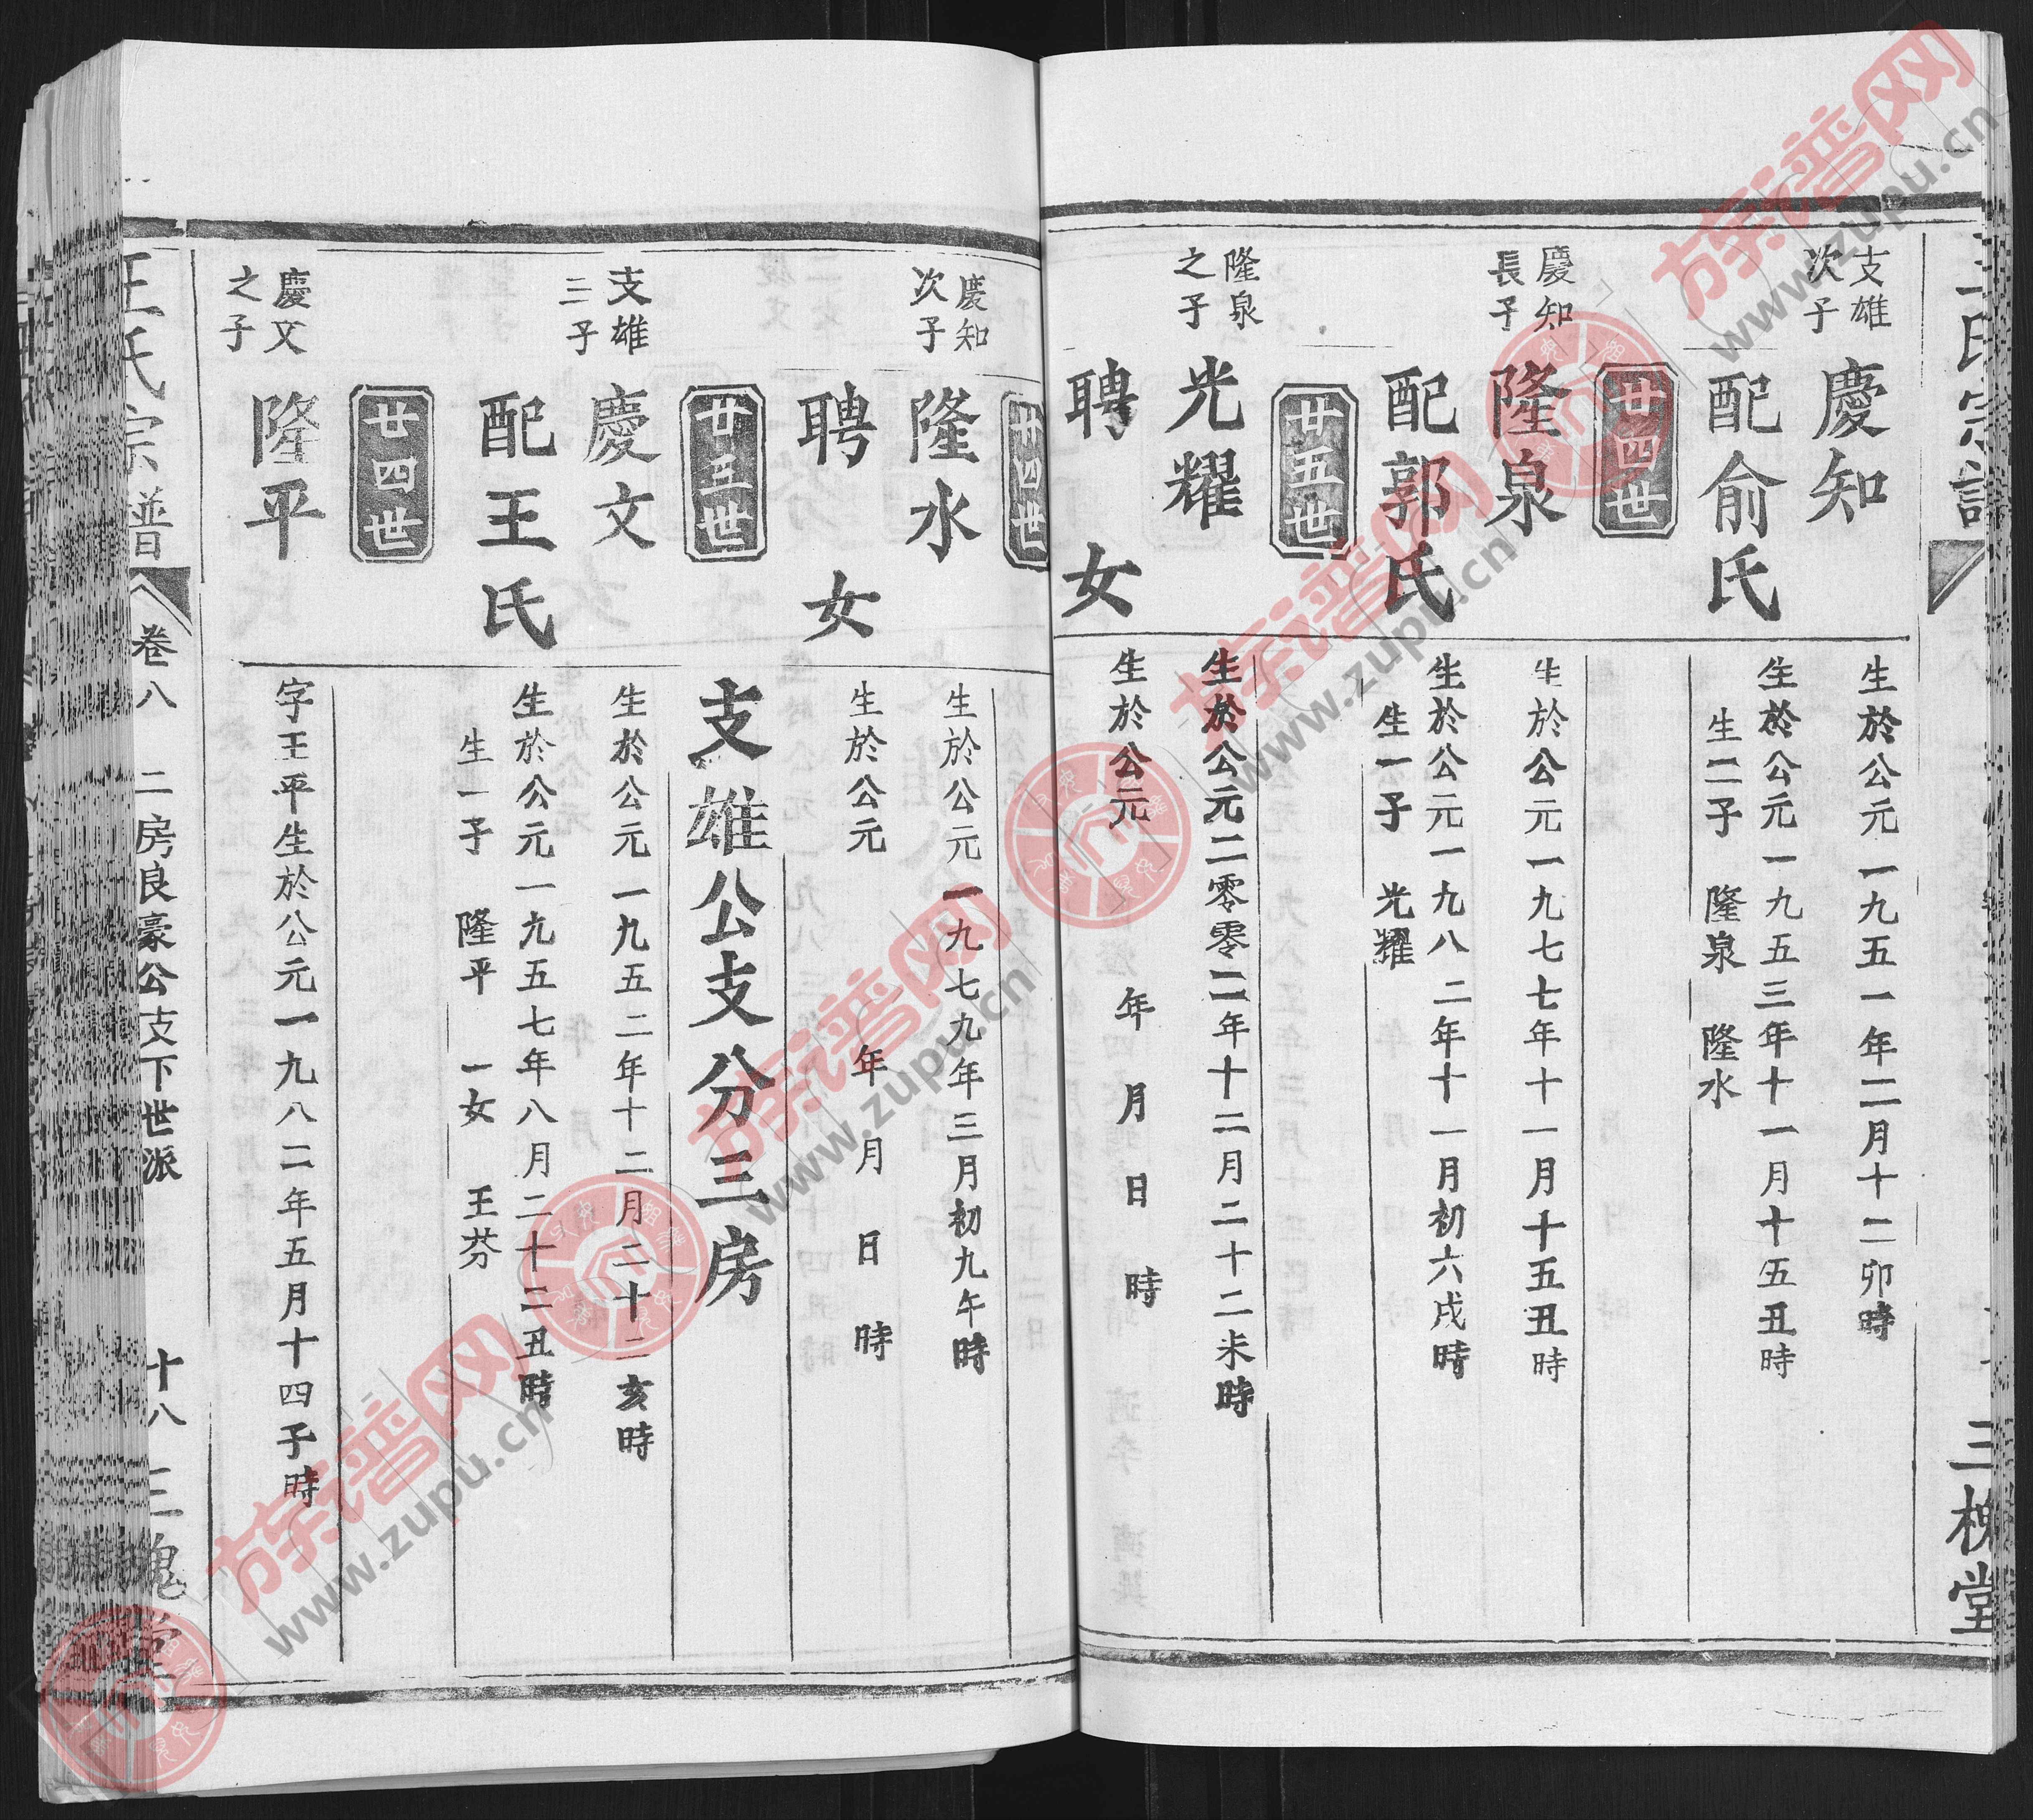 王氏宗譜
三槐堂
支雄
次子
慶知
生於公元一九五一年二月十二卯時
配俞氏
生於公元一九五三年十一月十五丑時
生二子 隆泉 隆水
廿四世
慶知
長子
隆泉
生於公元一九七七年十一月十五丑時
配郭氏
生於公元一九八二年十一月初六戌時
生一子 光耀
廿五世
隆泉
之子
光耀
生於公元二零零二年十二月二十二未時
聘 女
生於公元 年 月 日 時
廿四世
慶知
次子
隆水
生於公元一九七九年三月初九午時
聘 女
生於公元 年 月 日 時
支雄公支分三房
廿三世
支雄
三子
慶文
生於公元一九五二年十二月二十二亥時
配王氏
生於公元一九五七年八月二十二丑時
生一子 隆平 一女 王芬
廿四世
慶文
之子
隆平
字王平生於公元一九八二年五月十四子時
王氏宗譜
卷八 二房良豪公支下世派
十八
三槐堂
族谱网
www.zupu.cn
族谱网
www.zupu.cn
族谱网
www.zupu.cn
族谱网
www.zupu.cn